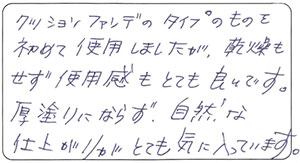 クッションファンデのタイプのものを
初めて使用しましたが、乾燥も
せず使用感もとても良いです。
厚塗りにならず、自然な
仕上がりがとても気に入っています。